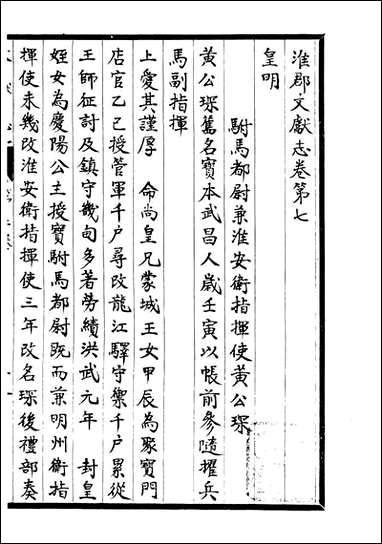 淮郡文獻志卷第七
皇明
駙馬都尉兼淮安衛指揮使黃公琛
黃公琛舊名寶本武昌人歲壬寅以帳前參隨擢兵
馬副指揮
上愛其謹厚 命尚皇兄蒙城王女甲辰為聚寶門
店官乙巳授管軍千戶尋改龍江驛守禦千戶累從
王師征討及鎮守畿甸多著勞績洪武元年 封皇
姪女為慶陽公主授寶駙馬都尉既而兼明州衛指
揮使未幾改淮安衛指揮使三年改名琛後禮部奏